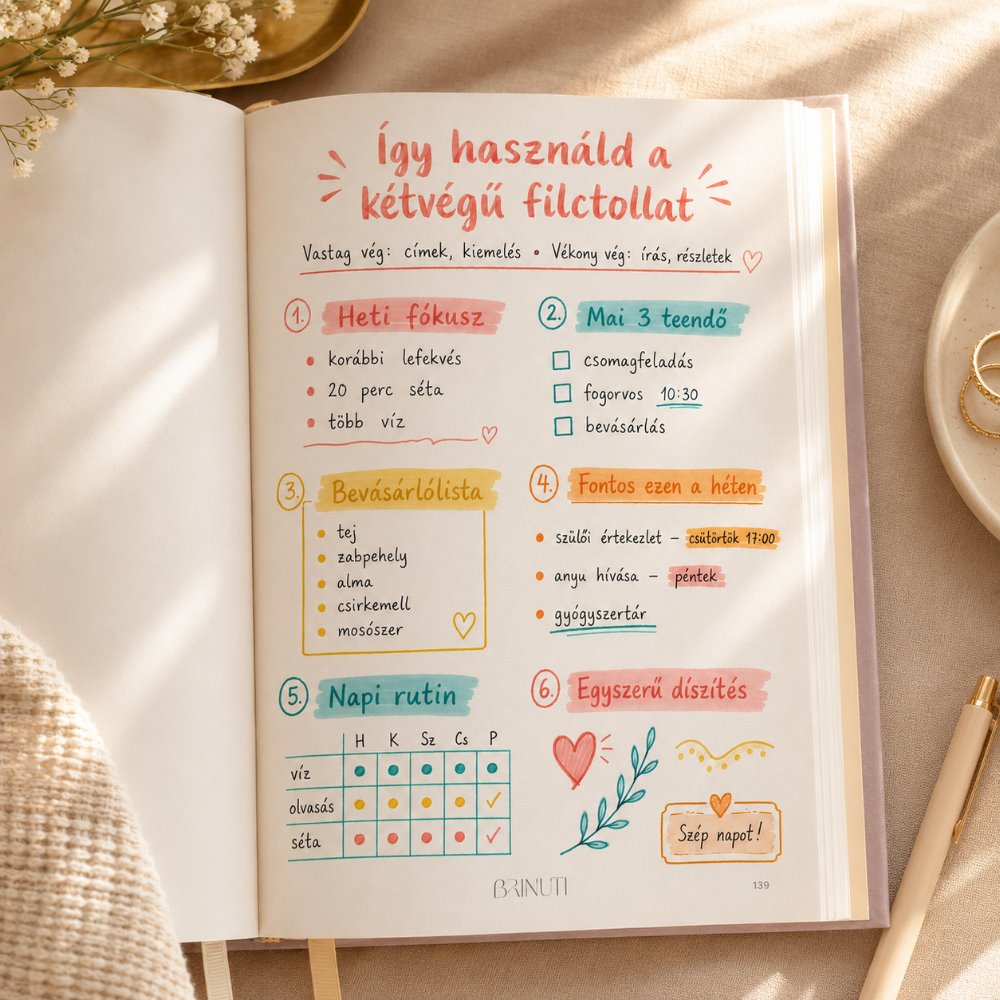 Így használd a
kétvégű filctollat
Vastag vég: címek, kiemelés • Vékony vég: írás, részletek
1. Heti fókusz
• korábbi lefekvés
• 20 perc séta
• több víz
2. Mai 3 teendő
csomagfeladás
fogorvos 10:30
bevásárlás
3. Bevásárlólista
• tej
• zabpehely
• alma
• csirkemell
• mosószer
4. Fontos ezen a héten
• szülői értekezlet – csütörtök 17:00
• anyu hívása – péntek
• gyógyszertár
5. Napi rutin
H K Sz Cs P
víz
olvasás
séta
6. Egyszerű díszítés
Szép napot!
BRINUTI
139